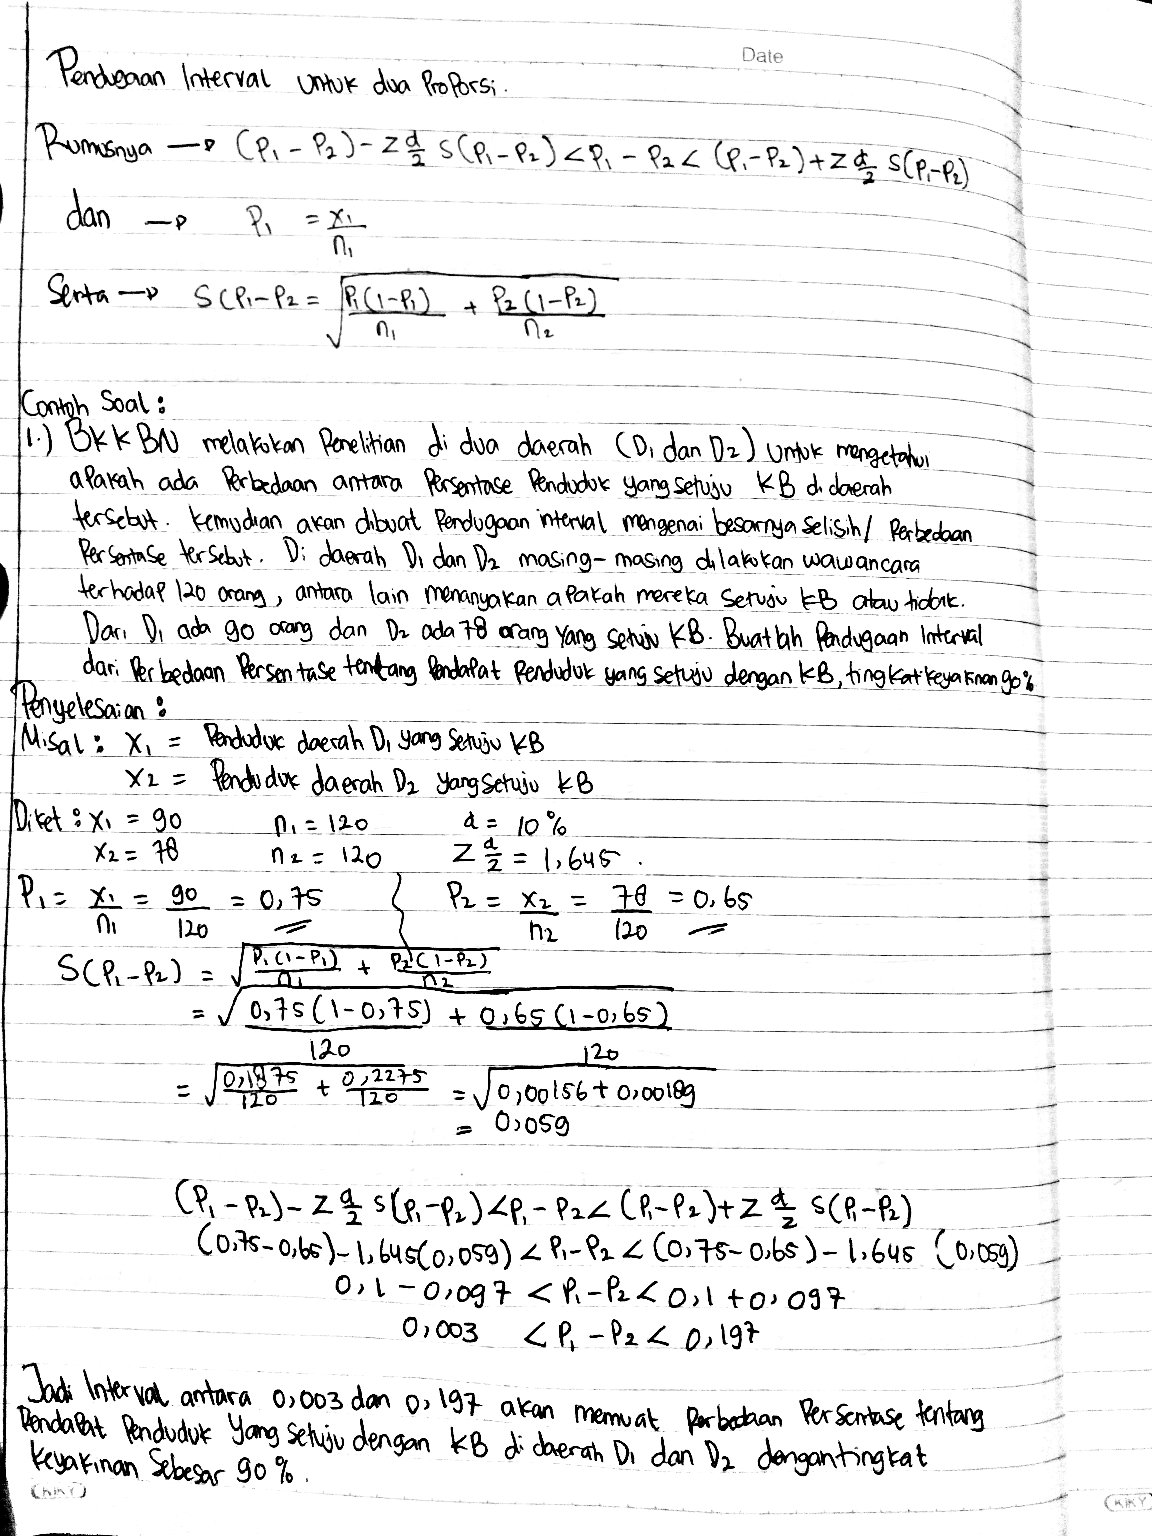 Date
Pendugaan Interval untuk dua Proporsi.
Rumusnya → (P₁ - P₂) - Z α/2 S(P₁-P₂) < P₁ - P₂ < (P₁-P₂) + Z α/2 S(P₁-P₂)
dan → P₁ = x₁/n₁
Serta → S(P₁-P₂ = √(P₁(1-P₁)/n₁ + P₂(1-P₂)/n₂)
Contoh Soal :
1.) BKKBN melakukan Penelitian di dua daerah (D₁ dan D₂) untuk mengetahui
apakah ada Perbedaan antara Persentase Penduduk yang setuju KB di daerah
tersebut. Kemudian akan dibuat Pendugaan interval mengenai besarnya selisih/ Perbedaan
Persentase tersebut. Di daerah D₁ dan D₂ masing-masing dilakukan wawancara
terhadap 120 orang, antara lain menanyakan apakah mereka setuju KB atau tidak.
Dari D₁ ada 90 orang dan D₂ ada 78 orang yang setuju KB. Buatlah Pendugaan Interval
dari Perbedaan Persentase tentang Pendapat Penduduk yang setuju dengan KB, tingkat keyakinan 90%
Penyelesaian :
Misal : X₁ = Penduduk daerah D₁ yang setuju KB
X₂ = Penduduk daerah D₂ yang setuju KB
Diket : X₁ = 90 n₁ = 120 α = 10%
X₂ = 78 n₂ = 120 Z α/2 = 1,645.
P₁ = X₁/n₁ = 90/120 = 0,75 P₂ = X₂/n₂ = 78/120 = 0,65
S(P₁-P₂) = √(P₁(1-P₁)/n₁ + P₂(1-P₂)/n₂)
= √(0,75(1-0,75)/120 + 0,65(1-0,65)/120)
= √(0,1875/120 + 0,2275/120) = √(0,00156 + 0,00189)
= 0,059
(P₁ - P₂) - Z α/2 S(P₁-P₂) < P₁ - P₂ < (P₁-P₂) + Z α/2 S(P₁-P₂)
(0,75-0,65) - 1,645(0,059) < P₁-P₂ < (0,75-0,65) - 1,645 (0,059)
0,1 - 0,097 < P₁-P₂ < 0,1 + 0,097
0,003 < P₁ - P₂ < 0,197
Jadi Interval antara 0,003 dan 0,197 akan memuat Perbedaan Persentase tentang
Pendapat Penduduk yang setuju dengan KB di daerah D₁ dan D₂ dengan tingkat
keyakinan sebesar 90%.
(KIKY) (KIKY)